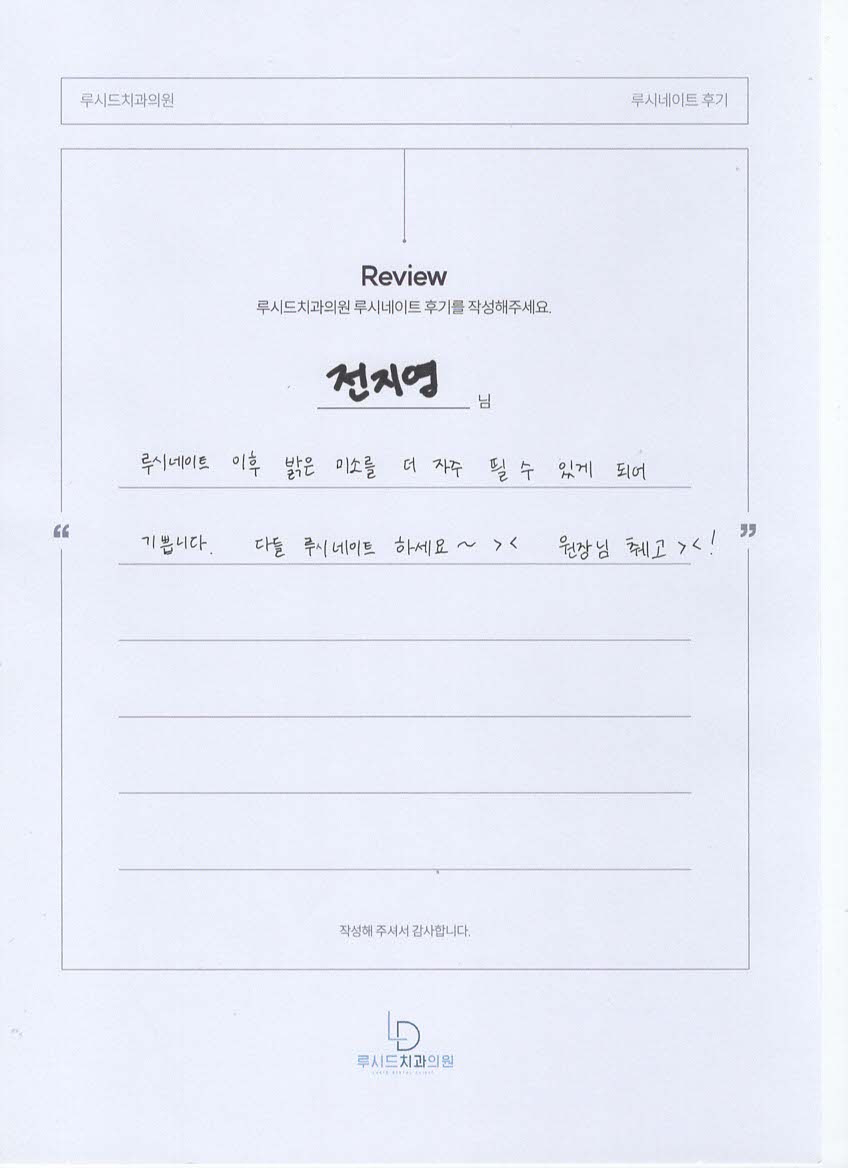 루시드치과의원 루시네이트 후기
Review
루시드치과의원 루시네이트 후기를 작성해주세요.
전지영 님
루시네이트 이후 밝은 미소를 더 자주 띌 수 있게 되어
“ 기쁩니다. 다들 루시네이트 하세요~ >< 원장님 췌고 ><! ”
작성해 주셔서 감사합니다.
LD
루시드치과의원
LUCID DENTAL CLINIC